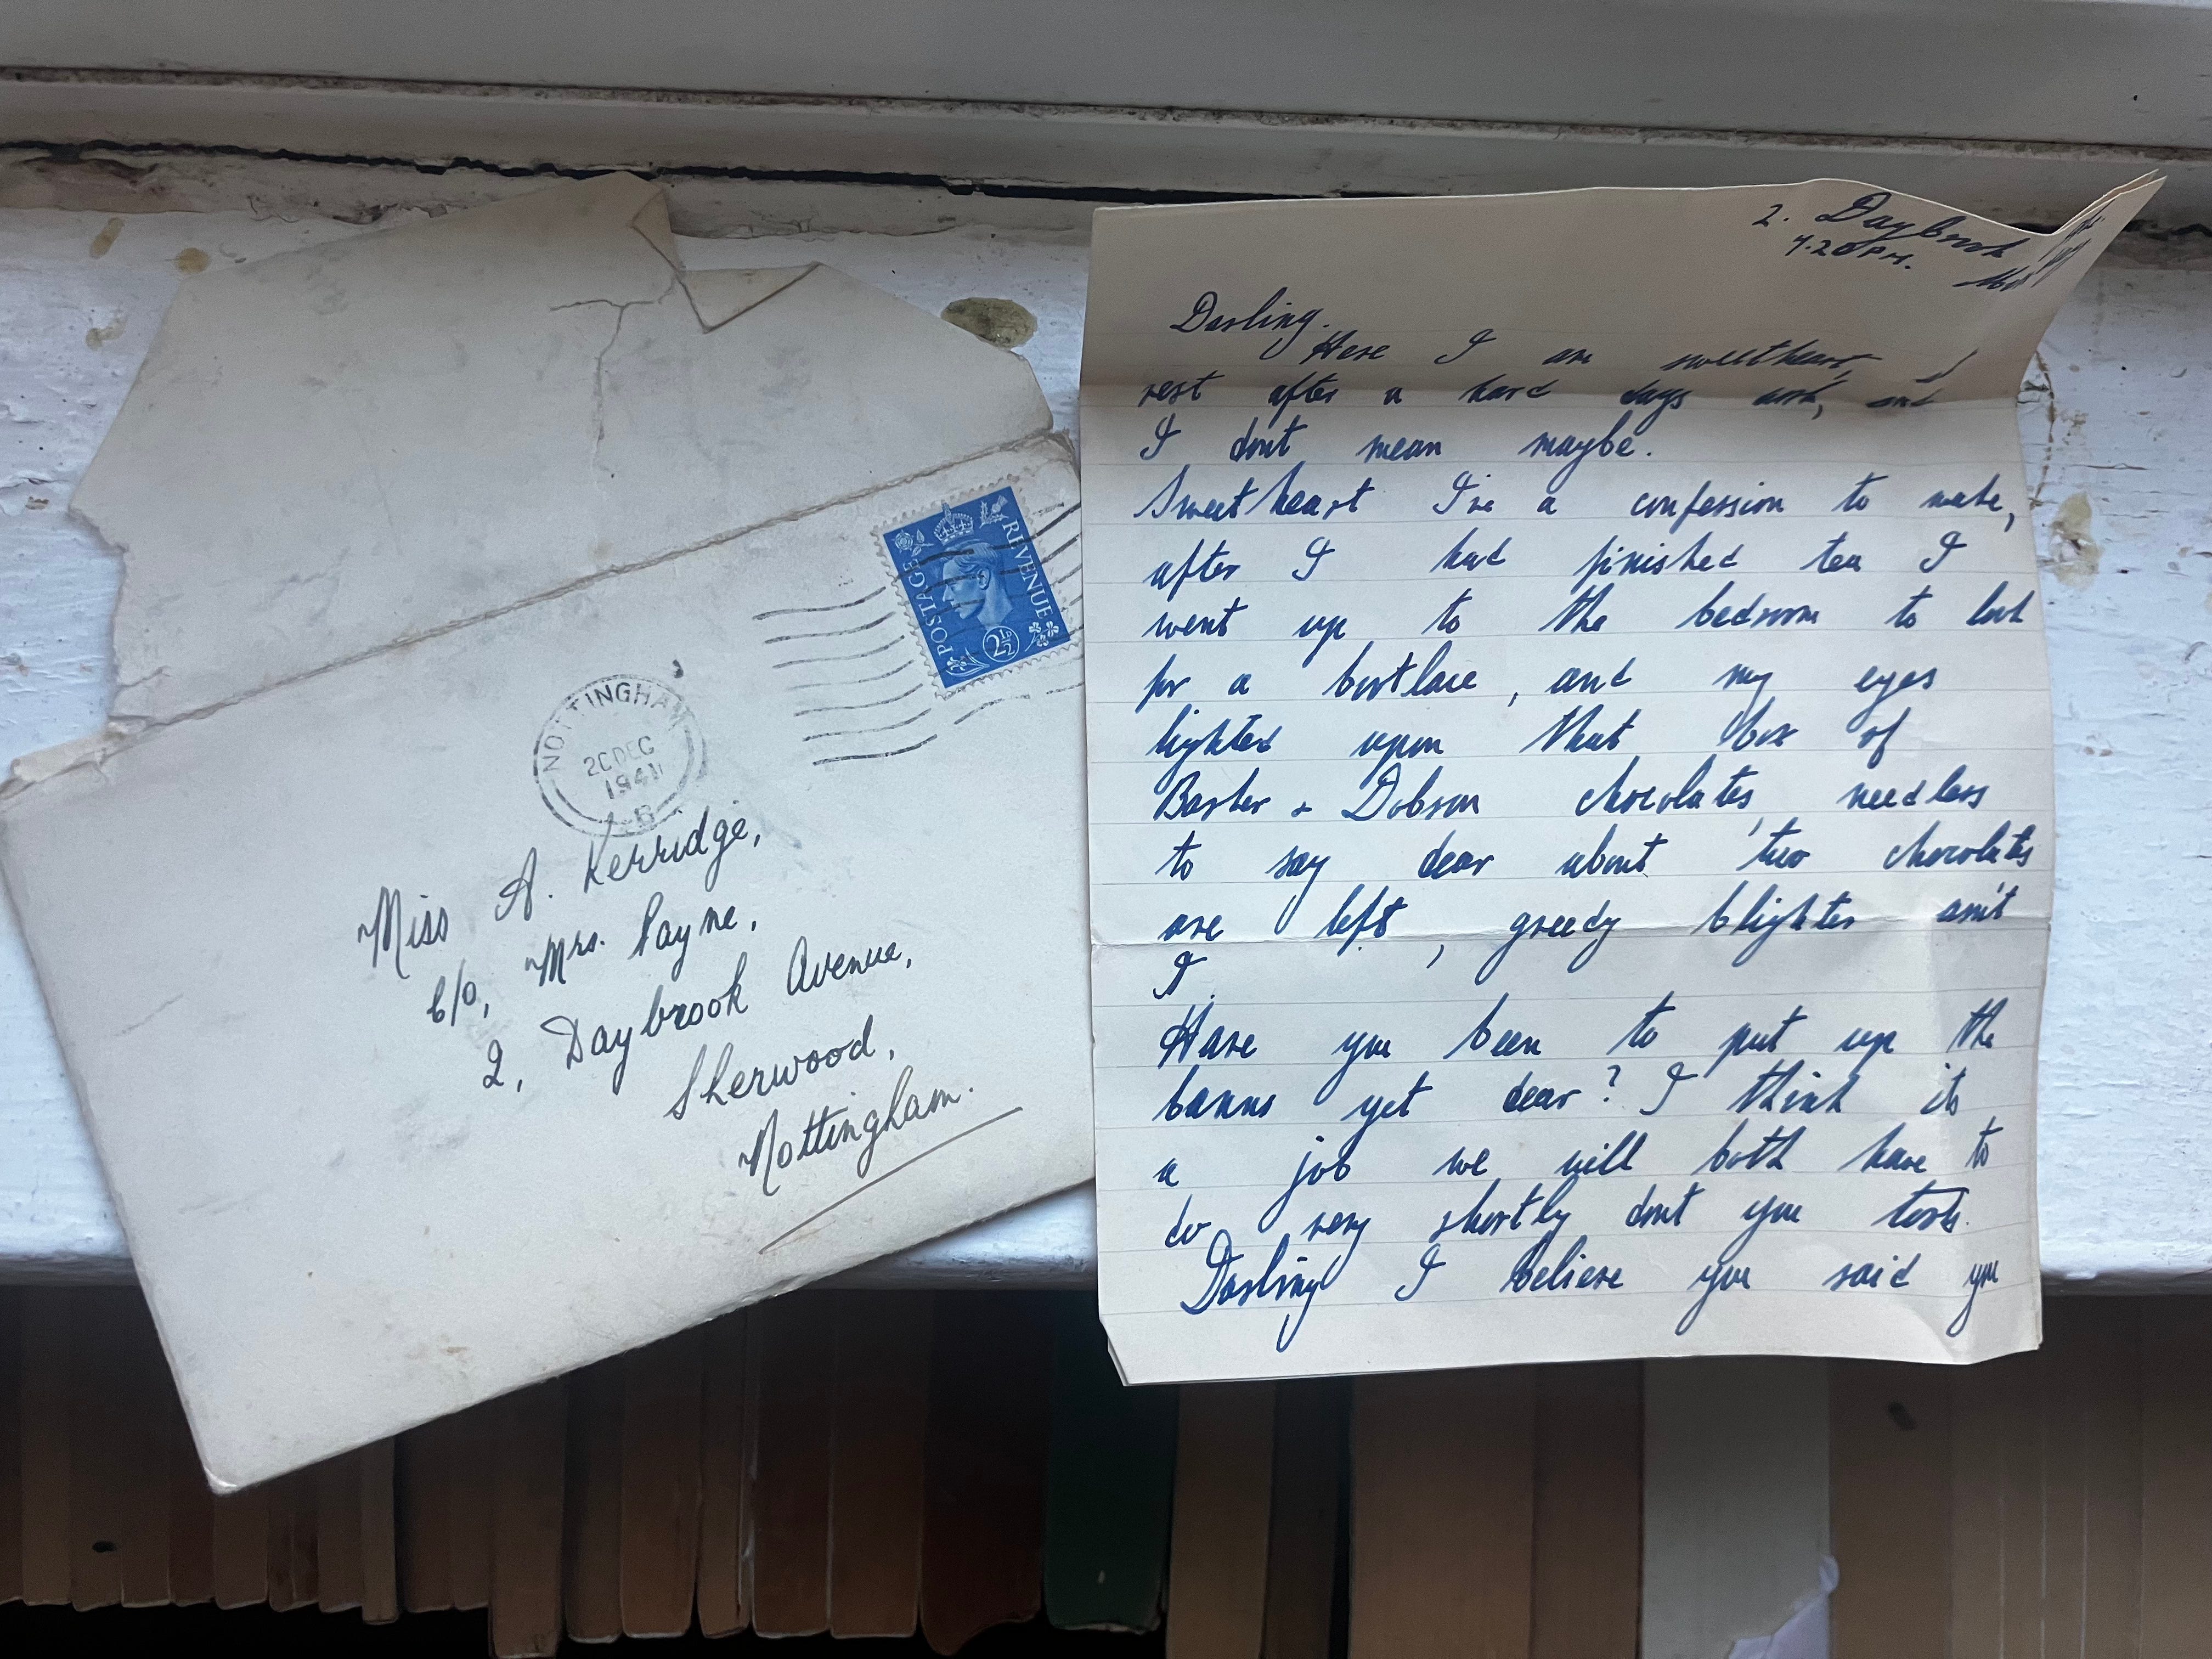 POSTAGE
REVENUE
2½D
NOTTINGHAM
20 DEC
1941
Miss A. Kerridge,
C/o, Mrs. Payne,
2, Daybrook Avenue,
Sherwood,
Nottingham.
2. Daybrook
7.20 P.M.
Darling.
Here I am sweetheart,
rest after a hard days work, and
I dont mean maybe.
Sweetheart I've a confession to make,
after I had finished tea I
went up to the bedroom to look
for a bootlace, and my eyes
lighted upon that box of
Barker & Dobson chocolates, needless
to say dear about two chocolates
are left, greedy blighter ain't
I.
Have you been to put up the
banns yet dear? I think its
a job we will both have to
do very shortly dont you
Darling I believe you said you